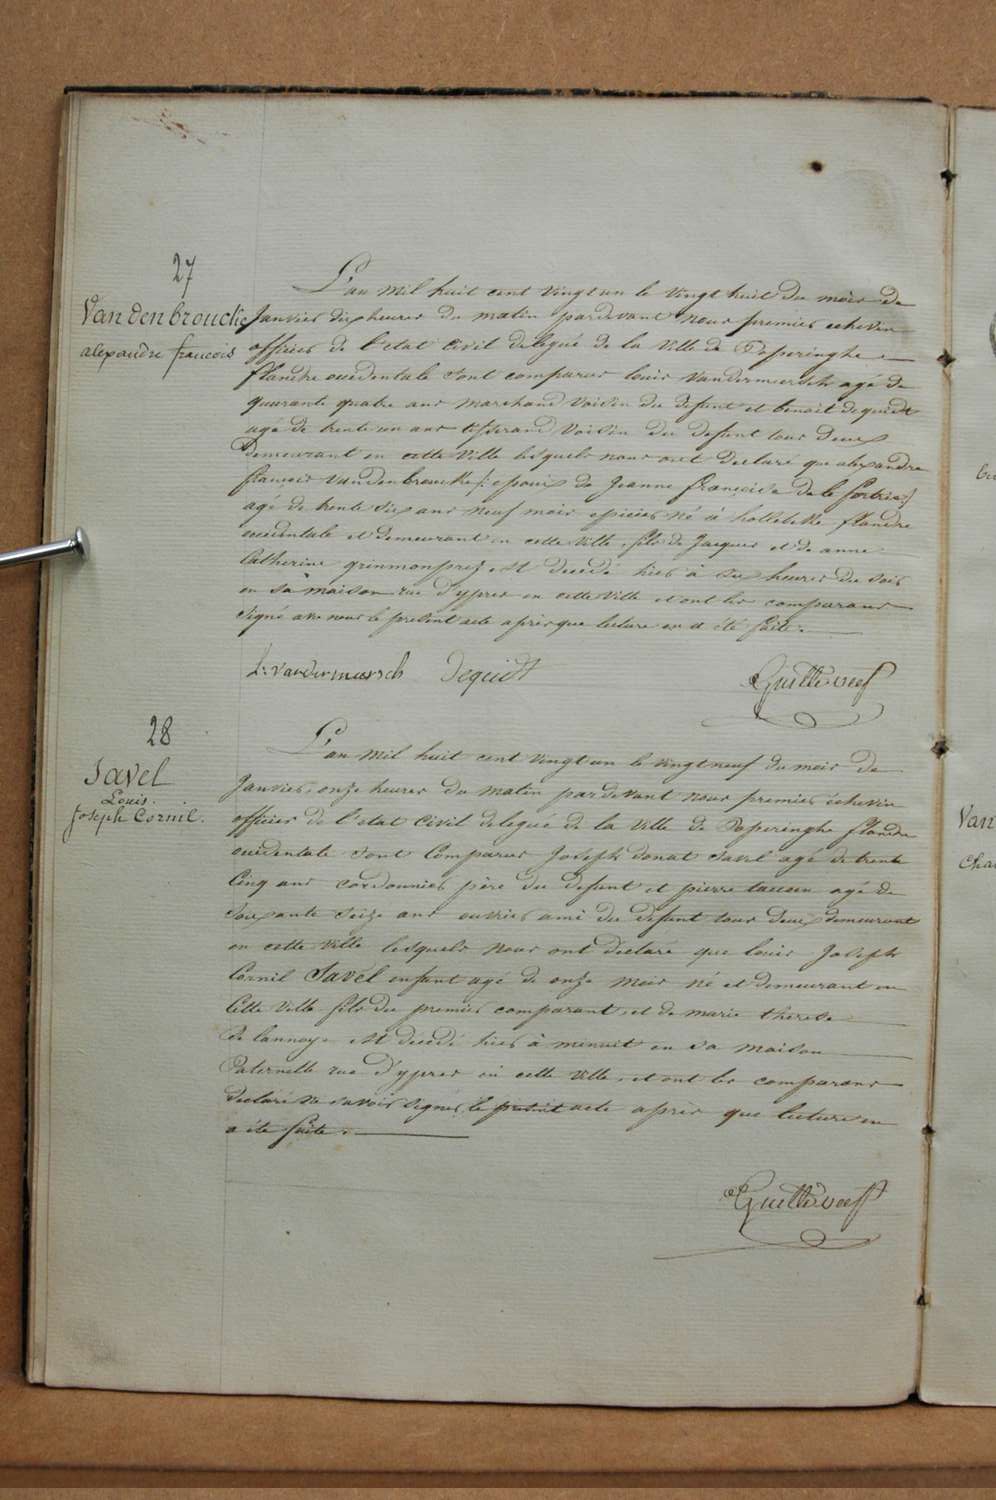 27
Vandenbroucke
alexandre francois
L'an mil huit cent vingt un le vingt huit du mois de
Janvier dix heures du matin pardevant nous premier echevin
officier de l'etat civil delegué de la ville de Poperinghe
flandre occidentale sont comparus louis Vandermeersch agé de
quarante quatre ans marchand voisin du defunt et benoit dequidt
agé de trente un ans tisserand voisin du defunt tous deux
demeurant en cette ville lesquels nous ont declaré que alexandre
francois Vandenbroucke /: epoux de Jeanne françoise de le :/
agé de trente six ans neuf mois epicier né à hollebeke flandre
occidentale et demeurant en cette ville, fils de Jacques et de anne
Catherine, est decedé hier à six heures du soir
en sa maison rue d'ypres en cette ville et ont les comparans
signé avec nous le present acte après que lecture en a été faite.
L: vandermeersch Dequidt
28
Javel
Louis.
Joseph Cornil.
L'an mil huit cent vingt un le vingt neuf du mois de
Janvier, onze heures du matin pardevant nous premier échevin
officier de l'etat civil delegué de la ville de Poperinghe flandre
occidentale sont comparus Joseph donat Javel agé de trente
cinq ans cordonnier père du defunt et pierre agé de
soixante seize ans ouvrier ami du defunt tous deux demeurant
en cette ville lesquels nous ont déclaré que louis Joseph
Cornil Javel enfant agé de onze mois né et demeurant en
cette ville fils du premier comparant, et de marie therese
De lannoye est decedé hier à minuit en sa maison
Paternelle rue d'ypres en cette ville, et ont les comparans
declaré ne savoir signer le présent acte après que lecture en
a été faite.
Van
cha